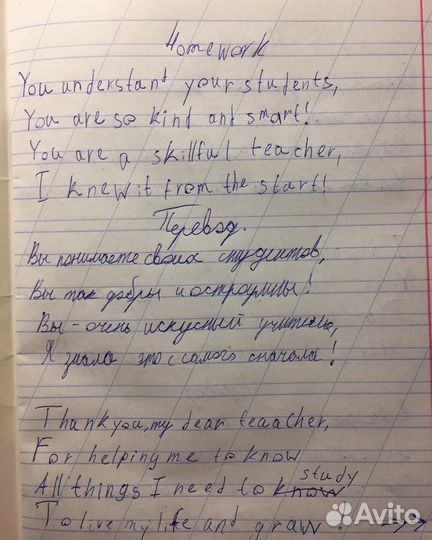 Homework
You understant your students,
You are so kind and smart!
You are a skillful teacher,
I knew it from the start!
Перевод.
Вы понимаете своих студентов,
Вы так добры и остроумны!
Вы - очень искусный учитель,
Я знала это с самого сначала!
Thank you, my dear teaacher,
For helping me to know
All things I need to know study
To live my life and graw
Avito